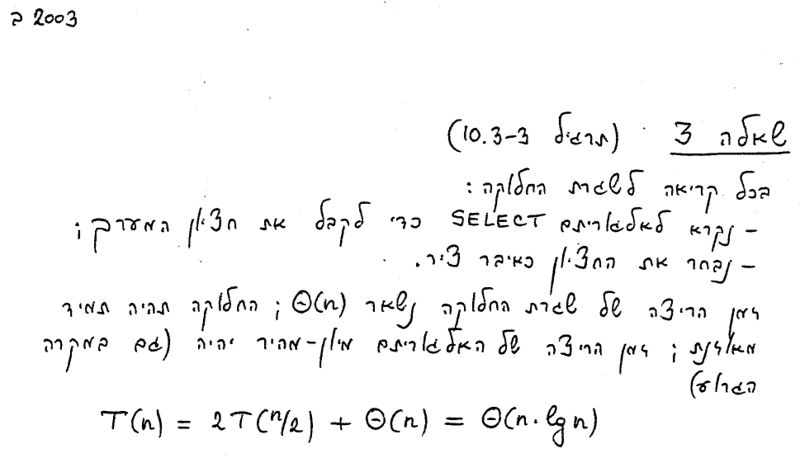 2003 ב
שאלה 3 (תרגיל 10.3-3)
בכל קריאה לשגרת החלוקה:
- נקרא לאלגוריתם SELECT כדי לקבל את חציון המערך;
- נבחר את החציון כאיבר ציר.
זמן הריצה של שגרת החלוקה נשאר Θ(n); החלוקה תהיה תמיד
מאוזנת; זמן הריצה של האלגוריתם מיון-מהיר יהיה (גם במקרה
הגרוע)
T(n) = 2T(n/2) + Θ(n) = Θ(n·lgn)